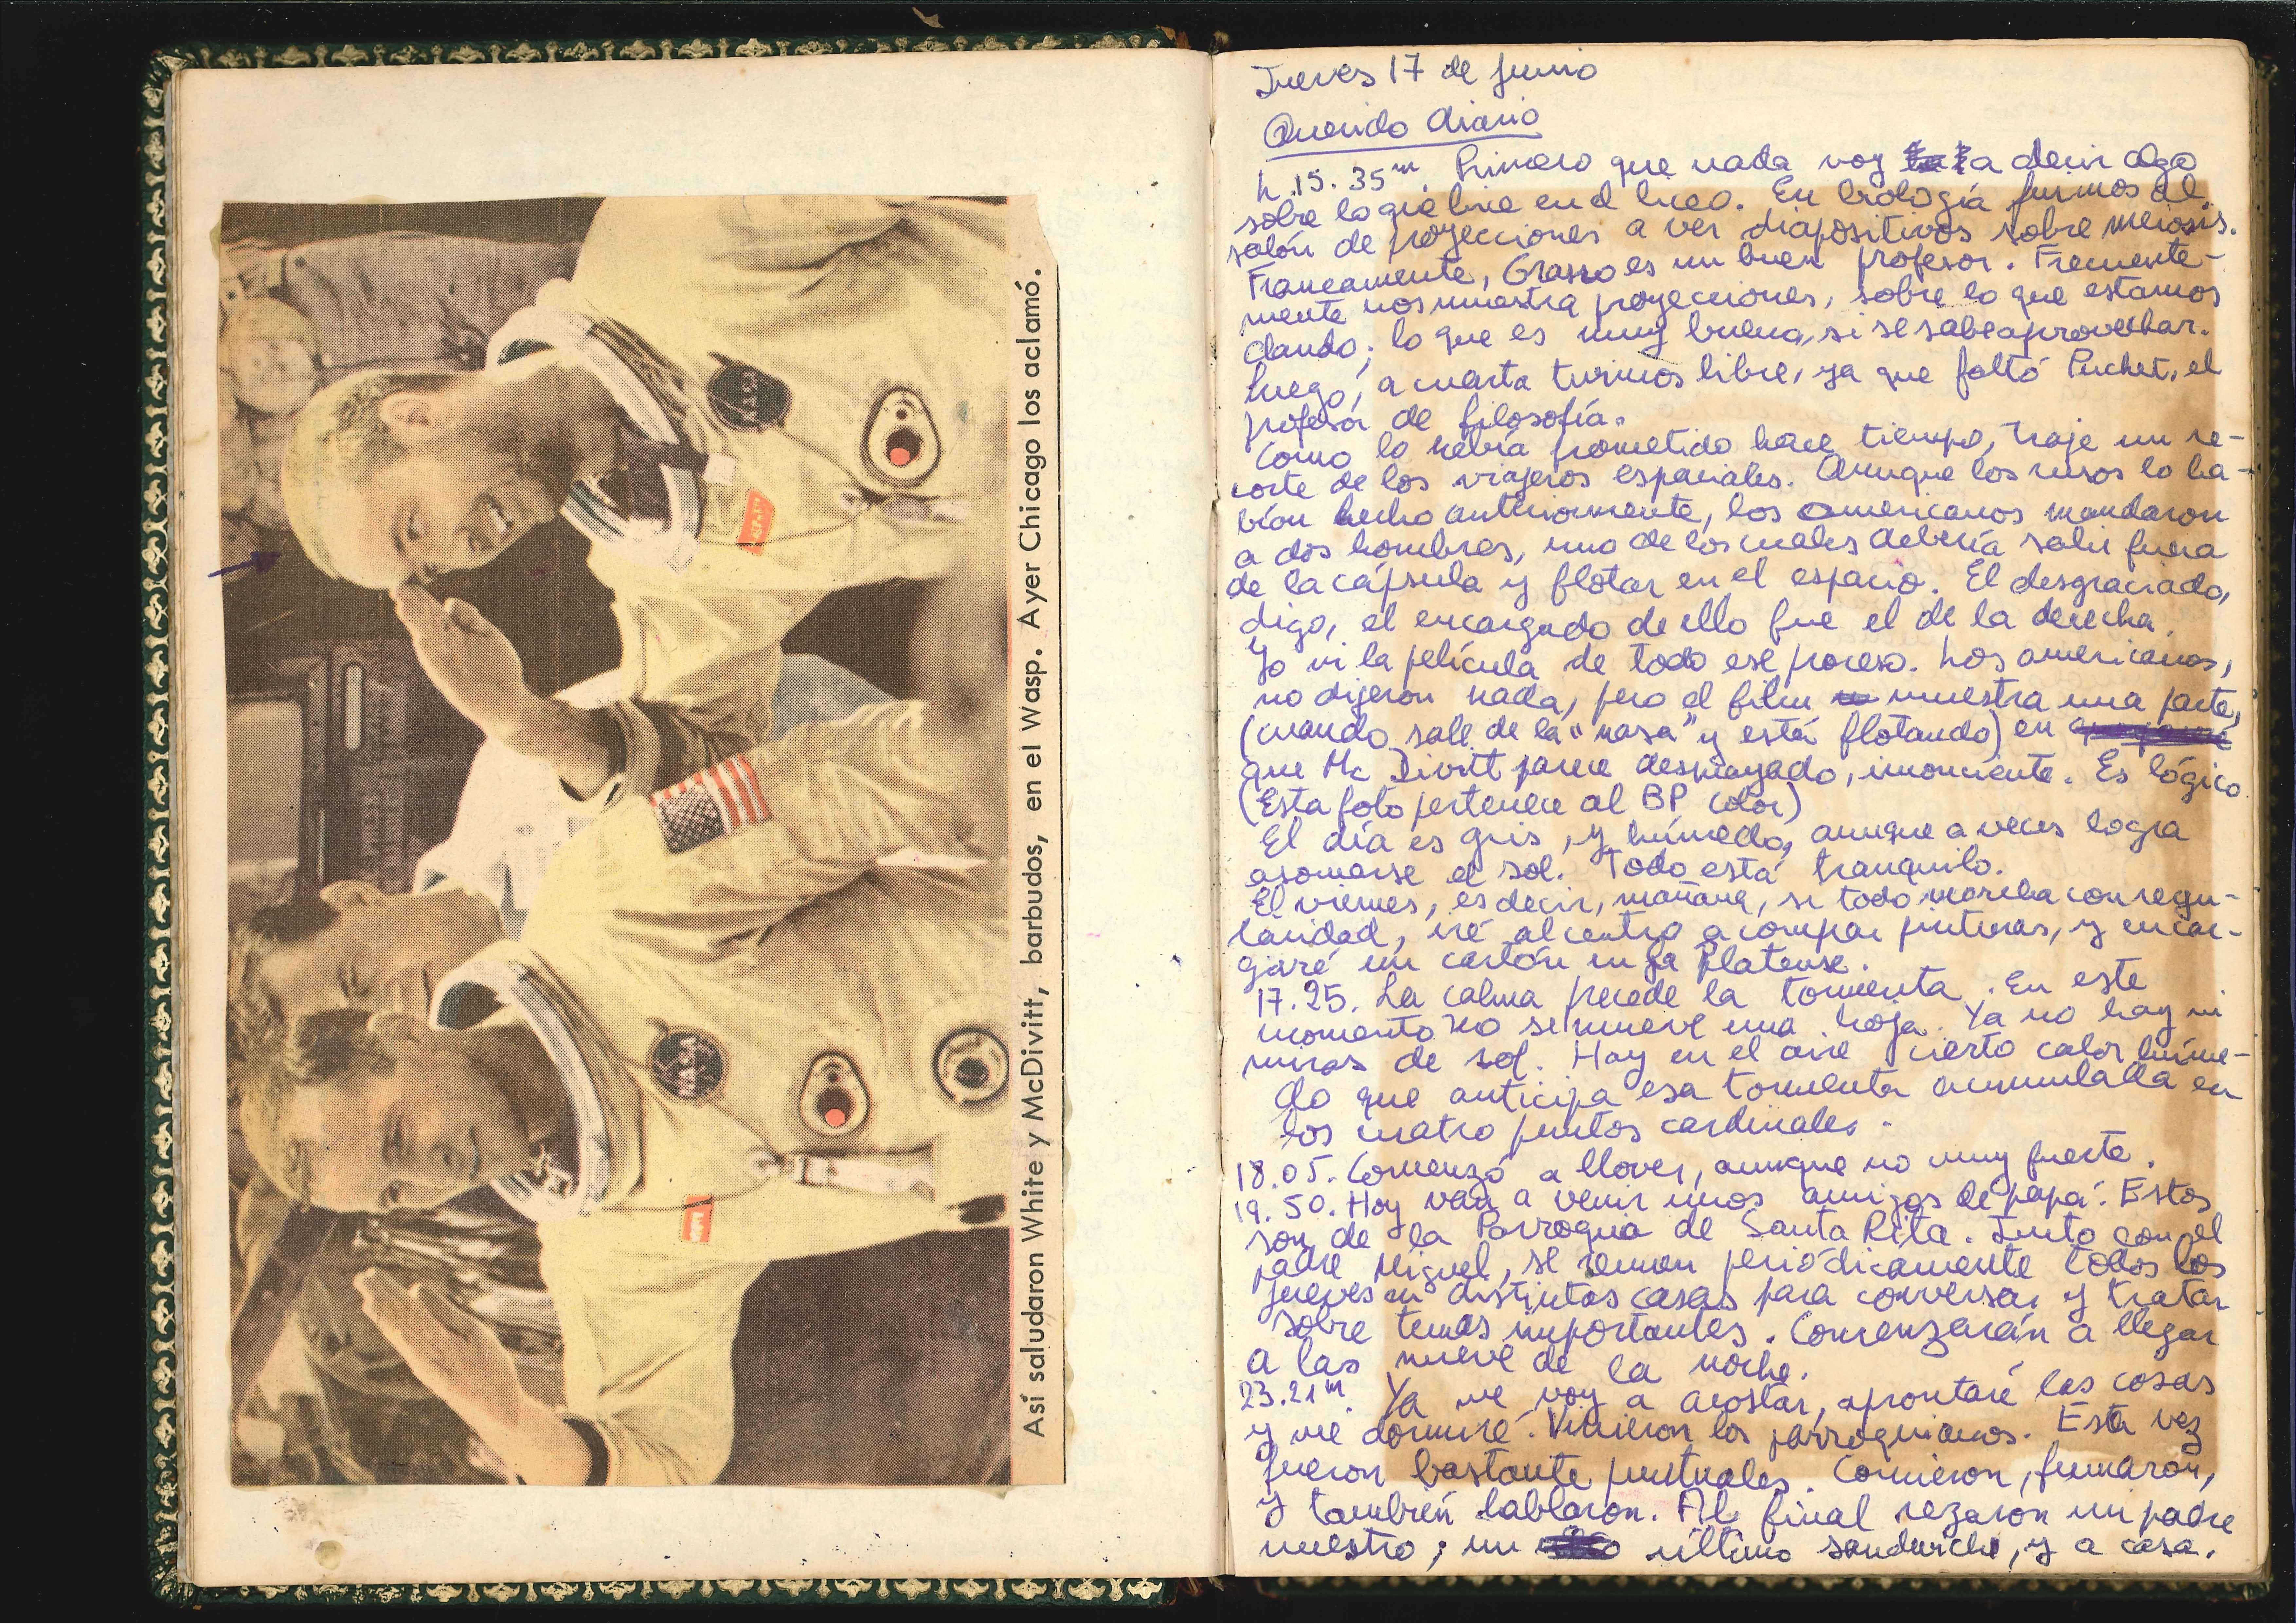 Así saludaron White y McDivitt, barbudos, en el Wasp. Ayer Chicago los aclamó.
Jueves 17 de junio
Querido diario
h. 15. 35m. Primero que nada voy a decir algo
sobre lo que hice en el liceo. En biología fuimos al
salón de proyecciones a ver diapositivos sobre meiosis.
Francamente, Grasso es un buen profesor. Frecuente-
mente nos muestra proyecciones, sobre lo que estamos
dando; lo que es muy bueno, si se sabe aprovechar.
Luego, a cuarta tuvimos libre, ya que faltó Puchet, el
profesor de filosofía.
Como lo había prometido hace tiempo, traje un re-
corte de los viajeros espaciales. Aunque los rusos lo ha-
bían hecho anteriormente, los americanos mandaron
a dos hombres, uno de los cuales debería salir fuera
de la cápsula y flotar en el espacio. El desgraciado,
digo, el encargado de ello fue el de la derecha.
Yo vi la película de todo ese proceso. Los americanos,
no dijeron nada, pero el film muestra una parte,
(cuando sale de la "nasa" y está flotando) en
que Mc Divitt parece desmayado, inconciente. Es lógico
(Esta foto pertenece al BP color)
El día es gris, y húmedo, aunque a veces logra
asomarse el sol. Todo está tranquilo.
El viernes, es decir, mañana, si todo marcha con regu-
laridad, iré al centro a comprar pinturas, y encar-
garé un cartón en La Platense.
17.25. La calma precede la tormenta. En este
momento no se mueve una hoja. Ya no hay ni
miras de sol. Hay en el aire cierto calor húme-
do que anticipa esa tormenta acumulada en
los cuatro puntos cardinales.
18.05. Comenzó a llover, aunque no muy fuerte.
19.50. Hoy van a venir unos amigos de papá. Estos
son de la Parroquia de Santa Rita. Junto con el
padre Miguel, se reunen periódicamente todos los
jueves en distintas casas para conversar y tratar
sobre temas importantes. Comenzarán a llegar
a las nueve de la noche.
23.21m. Ya me voy a acostar, aprontaré las cosas
y me dormiré. Vinieron los parroquianos. Esta vez
fueron bastante puntuales. Comieron, fumaron,
y también hablaron. Al final rezaron un padre
nuestro; un último sandwiche, y a casa.